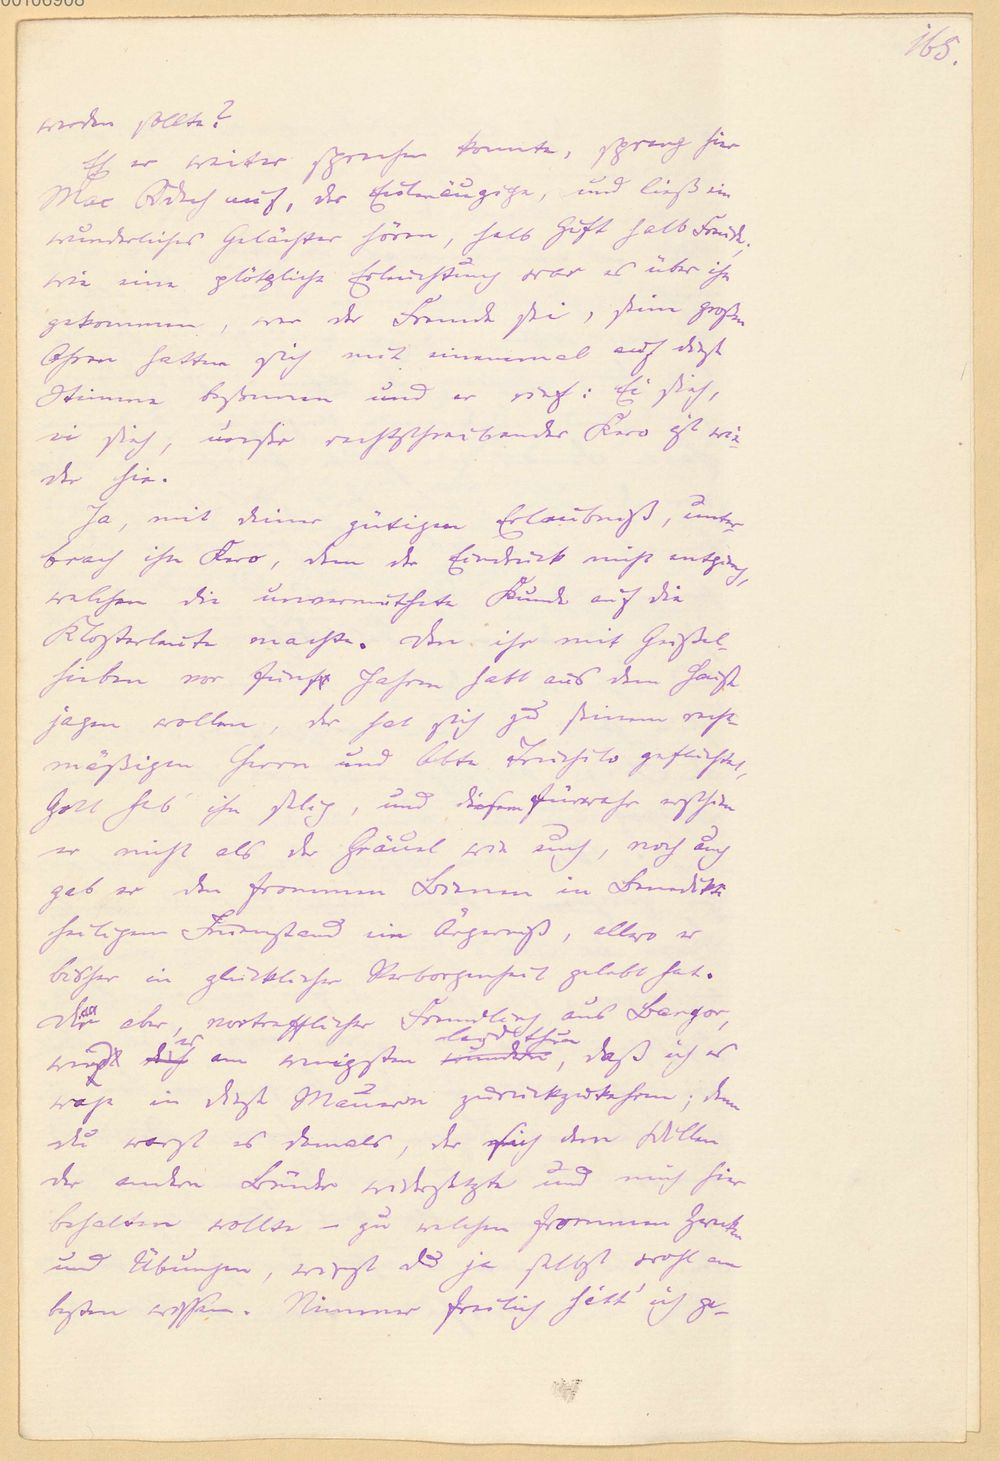 00106908
165.
werden sollte?
Eh er weiter sprechen konnte, sprang hier
Mac Aedh auf, der Eulenäugige, und ließ ein
wunderliches Gelächter hören, halb Gift halb Freude;
wie eine plötzliche Erleuchtung war es über ihn
gekommen, wer der Fremde sei, seine großen
Ohren hatten sich mit einemmal auf diese
Stimme besonnen und er rief: Ei sieh,
ei sieh, unser rechtschreibender Kero ist wie-
der hie.
Ja, mit deiner gütigen Erlaubniß, unter-
brach ihn Kero, dem der Eindruck nicht entging,
welchen die unvermuthete Kunde auf die
Klosterleute machte. Den ihr mit Geißel-
hieben vor fünf Jahren habt aus dem Hause
jagen wollen, der hat sich zu seinem recht-
mäßigen Herrn und Abte geflüchtet,
Gott hab' ihn selig, und diesem fürwahr erschien
er nicht als der Gräuel wie euch, noch auch
gab er den frommen Bienen in Benedikts
heiligem Immenstand ein Ärgerniß, allwo er
bisher in glücklicher Verborgenheit gelebt hat.
Dir aber, vortrefflicher Fremdling aus Bangor,
wird es am wenigsten leid thun, daß ich es
wage in diese Mauern zurückzukehren; denn
du warst es damals, der sich dem Willen
der andern Brüder widersetzte und mich hier
behalten wollte – zu welchen frommen Zwecken
und Übungen, wirst du ja selbst wohl am
besten wissen. Nimmer freilich hätt' ich ge-